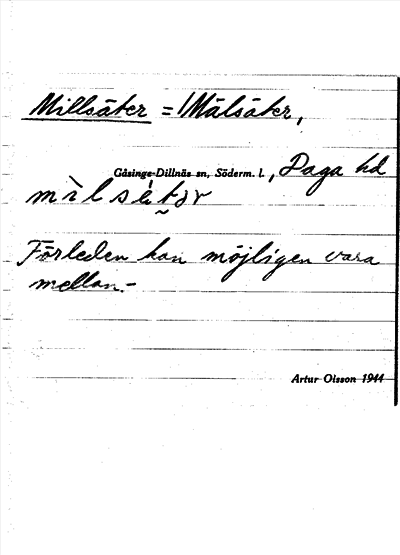 Millsäter = Målsäter,
Gåsinge-Dillnäs sn, Söderm. l., Daga hd
mìlsétər
Förleden kan möjligen vara
mellan.-
Artur Olsson 1944